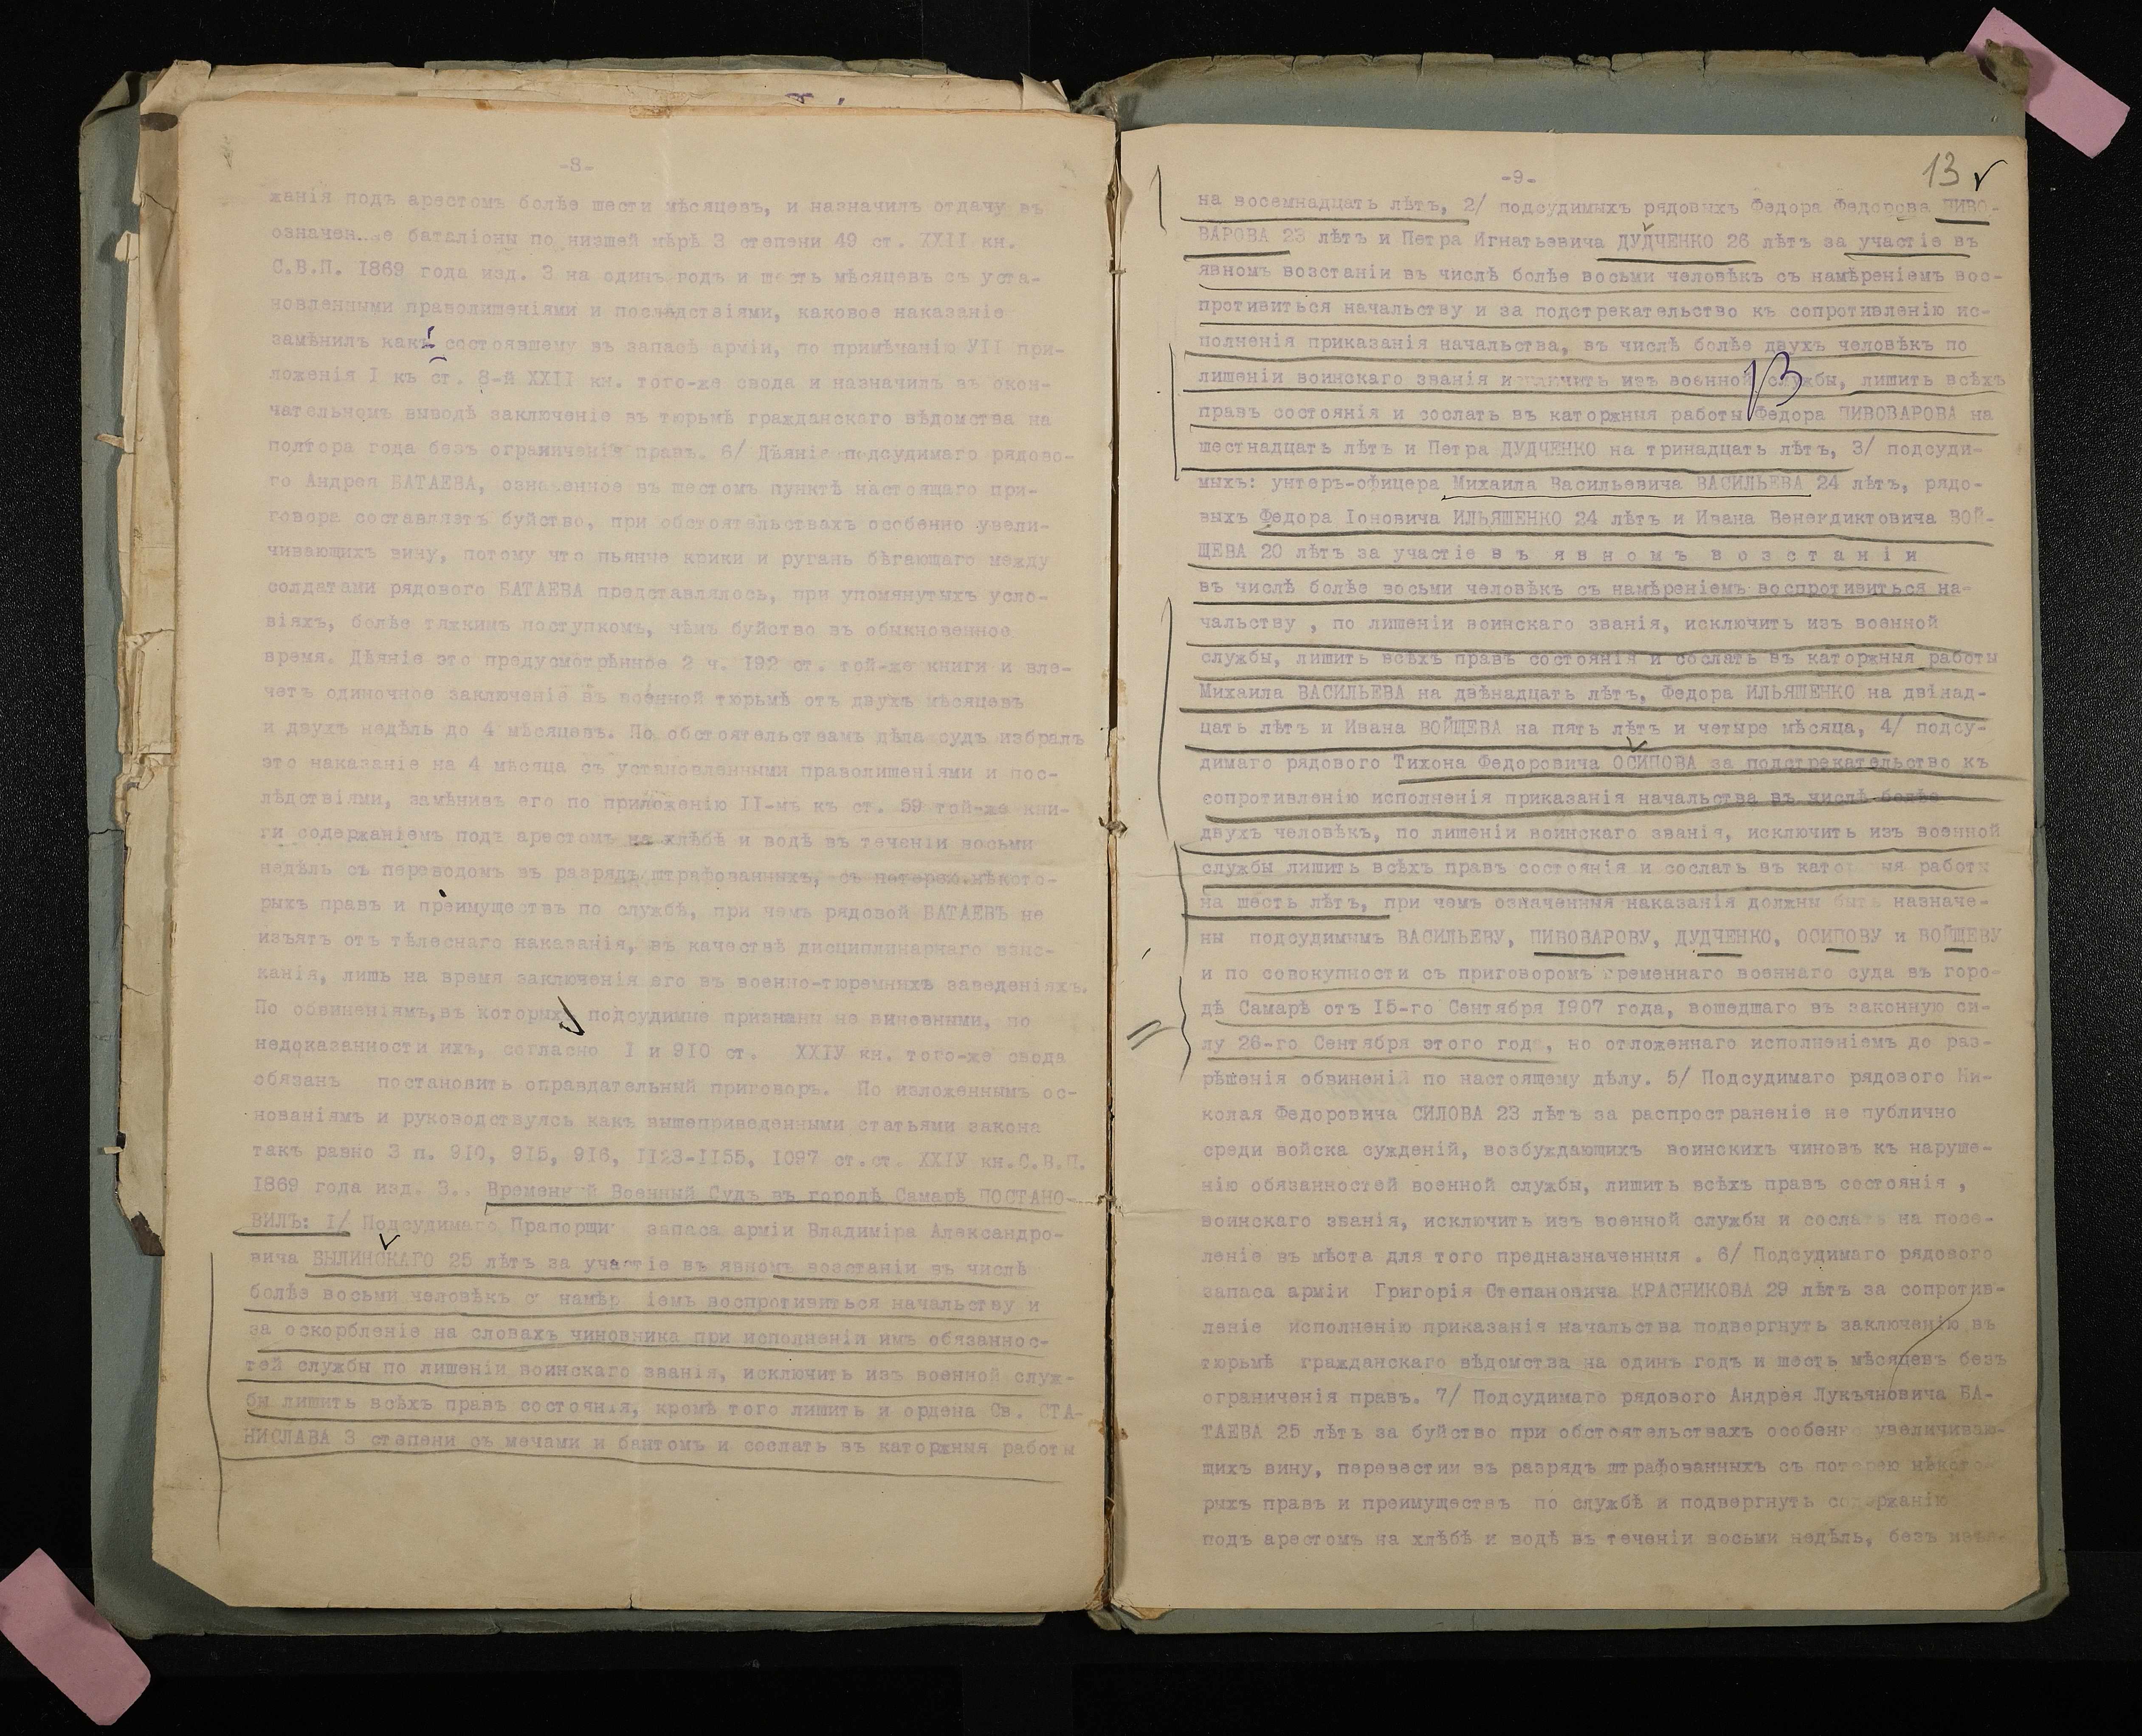 -8-
жанія подъ арестомъ болѣе шести мѣсяцевъ, и назначилъ отдачу въ
баталіоны по низшей мѣрѣ 3 степени 49 ст. XXII кн.
С.В.П. 1869 года изд. 3 на одинъ годъ и шесть мѣсяцевъ съ уста-
новленными праволишеніями и послѣдствіями, каковое наказаніе
замѣнилъ какъ состоявшему въ запасѣ арміи, по примѣчанію УІІ при-
ложенія I къ ст. 8-й XXII кн. того-же свода и назначилъ въ окон-
чательномъ выводѣ заключеніе въ тюрьмѣ гражданскаго вѣдомства на
полтора года безъ ограниченія правъ. 6/ Дѣяніе подсудимаго рядово-
го Андрея БАТАЕВА, означенное въ шестомъ пунктѣ настоящаго при-
говора составляетъ буйство, при обстоятельствахъ особенно увели-
чивающихъ вину, потому что пьяные крики и ругань бѣгающаго между
солдатами рядового БАТАЕВА представлялось, при упомянутыхъ усло-
віяхъ, болѣе тяжкимъ поступкомъ, чѣмъ буйство въ обыкновенное
время. Дѣяніе это предусмотрѣнное 2 ч. 192 ст. той-же книги и вле-
четъ одиночное заключеніе въ военной тюрьмѣ отъ двухъ мѣсяцевъ
и двухъ недѣль до 4 мѣсяцевъ. По обстоятельствамъ дѣла судъ избралъ
это наказаніе на 4 мѣсяца съ установленными праволишеніями и пос-
лѣдствіями, замѣнивъ его по приложенію II-мъ къ ст. 59 той-же кни-
ги содержаніемъ подъ арестомъ на хлѣбѣ и водѣ въ теченіи восьми
недѣль съ переводомъ въ разрядъ штрафованныхъ, съ потерею нѣкото-
рыхъ правъ и преимуществъ по службѣ, при чемъ рядовой БАТАЕВЪ не
изъятъ отъ тѣлеснаго наказанія, въ качествѣ дисциплинарнаго взыс-
канія, лишь на время заключенія его въ военно-тюремныхъ заведеніяхъ.
По обвиненіямъ,въ которыхъ подсудимые признаны не виновными, по
недоказанности ихъ, согласно I и 910 ст. XXIУ кн. того-же свода
обязанъ постановить оправдательный приговоръ. По изложеннымъ ос-
нованіямъ и руководствуясь какъ вышеприведенными статьями закона
такъ равно 3 п. 910, 915, 916, II23-II55, I097 ст.ст. XXIУ кн.С.В.П.
1869 года изд. 3., Временный Военный Судъ въ городѣ Самарѣ ПОСТАНО-
ВИЛЪ: I/ Подсудимаго Прапорщи запаса арміи Владиміра Александро-
вича БЫЛИНСКАГО 25 лѣтъ за участіе въ явномъ возстаніи въ числѣ
болѣе восьми человѣкъ съ намѣреніемъ воспротивиться начальству и
за оскорбленіе на словахъ чиновника при исполненіи имъ обязаннос-
тей службы по лишеніи воинскаго званія, исключить изъ военной служ-
бы лишить всѣхъ правъ состоянія, кромѣ того лишить и ордена Св. СТА-
НИСЛАВА 3 степени съ мечами и бантомъ и сослать въ каторжныя работы
13
-9-
на восемнадцать лѣтъ, 2/ подсудимыхъ рядовыхъ Федора Федорова ПИВО-
ВАРОВА 23 лѣтъ и Петра Игнатьевича ДУДЧЕНКО 26 лѣтъ за участіе въ
явномъ возстаніи въ числѣ болѣе восьми человѣкъ съ намѣреніемъ вос-
противиться начальству и за подстрекательство къ сопротивленію ис-
полненія приказанія начальства, въ числѣ болѣе двухъ человѣкъ по
лишеніи воинскаго званія исключить изъ военной службы, лишить всѣхъ
13
правъ состоянія и сослать въ каторжныя работы Федора ПИВОВАРОВА на
шестнадцать лѣтъ и Петра ДУДЧЕНКО на тринадцать лѣтъ, 3/ подсуди-
мыхъ: унтеръ-офицера Михаила Васильевича ВАСИЛЬЕВА 24 лѣтъ, рядо-
выхъ Федора Іоновича ИЛЬЯШЕНКО 24 лѣтъ и Ивана Венедиктовича ВОЙ-
ЩЕВА 20 лѣтъ за участіе в ъ я в н о м ъ в о з с т а н і и
въ числѣ болѣе восьми человѣкъ съ намѣреніемъ воспротивиться на-
чальству , по лишеніи воинскаго званія, исключить изъ военной
службы, лишить всѣхъ правъ состоянія и сослать въ каторжныя работы
Михаила ВАСИЛЬЕВА на двѣнадцать лѣтъ, Федора ИЛЬЯШЕНКО на двѣнад-
цать лѣтъ и Ивана ВОЙЩЕВА на пять лѣтъ и четыре мѣсяца, 4/ подсу-
димаго рядового Тихона Федоровича ОСИПОВА за подстрекательство къ
сопротивленію исполненія приказанія начальства въ числѣ болѣе
двухъ человѣкъ, по лишеніи воинскаго званія, исключить изъ военной
службы лишить всѣхъ правъ состоянія и сослать въ каторжныя работы
на шесть лѣтъ, при чемъ означенныя наказанія должны быть назначе-
ны подсудимымъ ВАСИЛЬЕВУ, ПИВОВАРОВУ, ДУДЧЕНКО, ОСИПОВУ и ВОЙЩЕВУ
и по совокупности съ приговоромъ временнаго военнаго суда въ горо-
дѣ Самарѣ отъ 15-го Сентября 1907 года, вошедшаго въ законную си-
лу 26-го Сентября этого года, но отложеннаго исполненіемъ до раз-
рѣшенія обвиненій по настоящему дѣлу. 5/ Подсудимаго рядового Ни-
колая Федоровича СИЛОВА 23 лѣтъ за распространеніе не публично
среди войска сужденій, возбуждающихъ воинскихъ чиновъ къ наруше-
нію обязанностей военной службы, лишить всѣхъ правъ состоянія ,
воинскаго званія, исключить изъ военной службы и сослать на посе-
леніе въ мѣста для того предназначенныя . 6/ Подсудимаго рядового
запаса арміи Григорія Степановича КРАСНИКОВА 29 лѣтъ за сопротив-
леніе исполненію приказанія начальства подвергнуть заключенію въ
тюрьмѣ гражданскаго вѣдомства на одинъ годъ и шесть мѣсяцевъ безъ
ограниченія правъ. 7/ Подсудимаго рядового Андрея Лукъяновича БА-
ТАЕВА 25 лѣтъ за буйство при обстоятельствахъ особенно увеличиваю-
щихъ вину, перевести въ разрядъ штрафованныхъ съ потерею нѣкото-
рыхъ правъ и преимуществъ по службѣ и подвергнуть содержанію
подъ арестомъ на хлѣбѣ и водѣ въ теченіи восьми недѣль, безъ